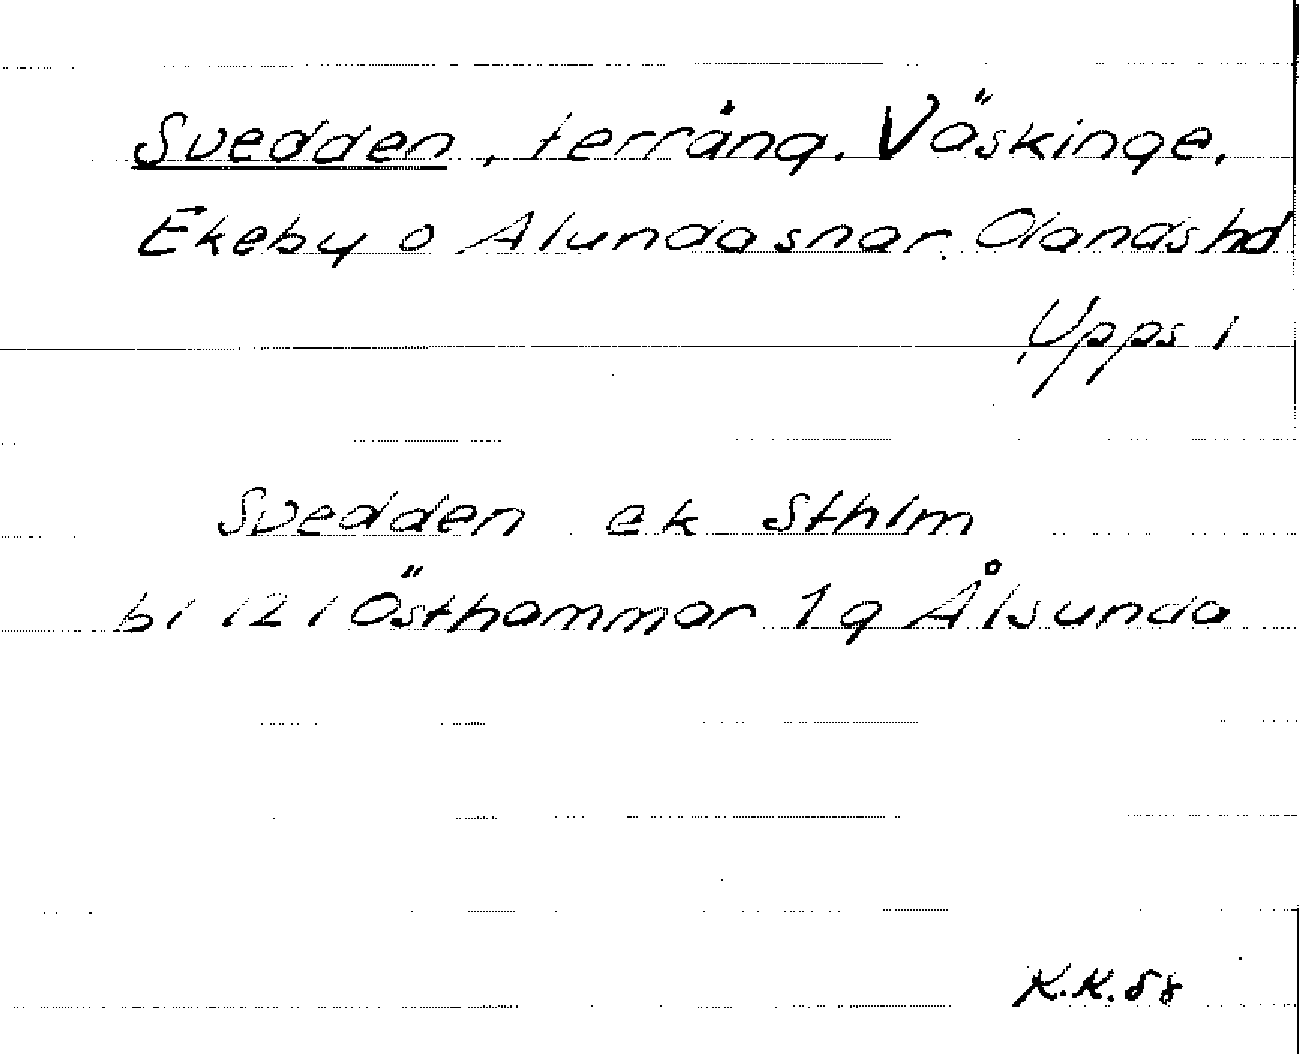 Svedden, terräng. Väskinge,
Ekeby o Alunda snar Olands hd
Upps l
Svedden ek Sthlm
bl 12 l Östhammar 1 q Ålsunda
K.K. 58